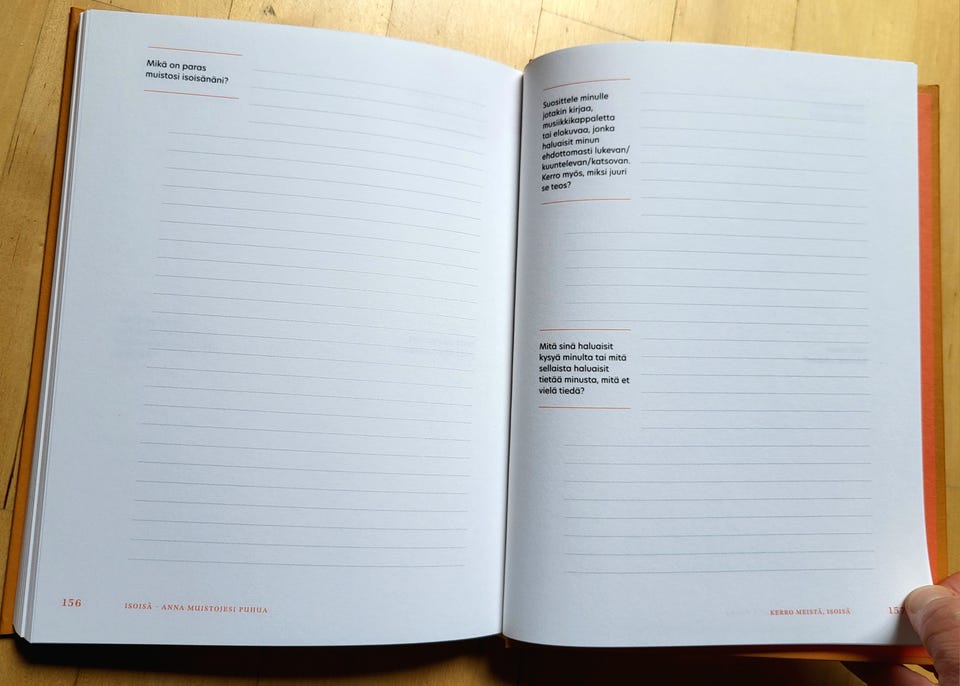 Mikä on paras
muistosi isoisänäni?
156
ISOISÄ - ANNA MUISTOJESI PUHUA
Suosittele minulle
jotakin kirjaa,
musiikkikappaletta
tai elokuvaa, jonka
haluaisit minun
ehdottomasti lukevan/
kuuntelevan/katsovan.
Kerro myös, miksi juuri
se teos?
Mitä sinä haluaisit
kysyä minulta tai mitä
sellaista haluaisit
tietää minusta, mitä et
vielä tiedä?
KERRO MEISTÄ, ISOISÄ